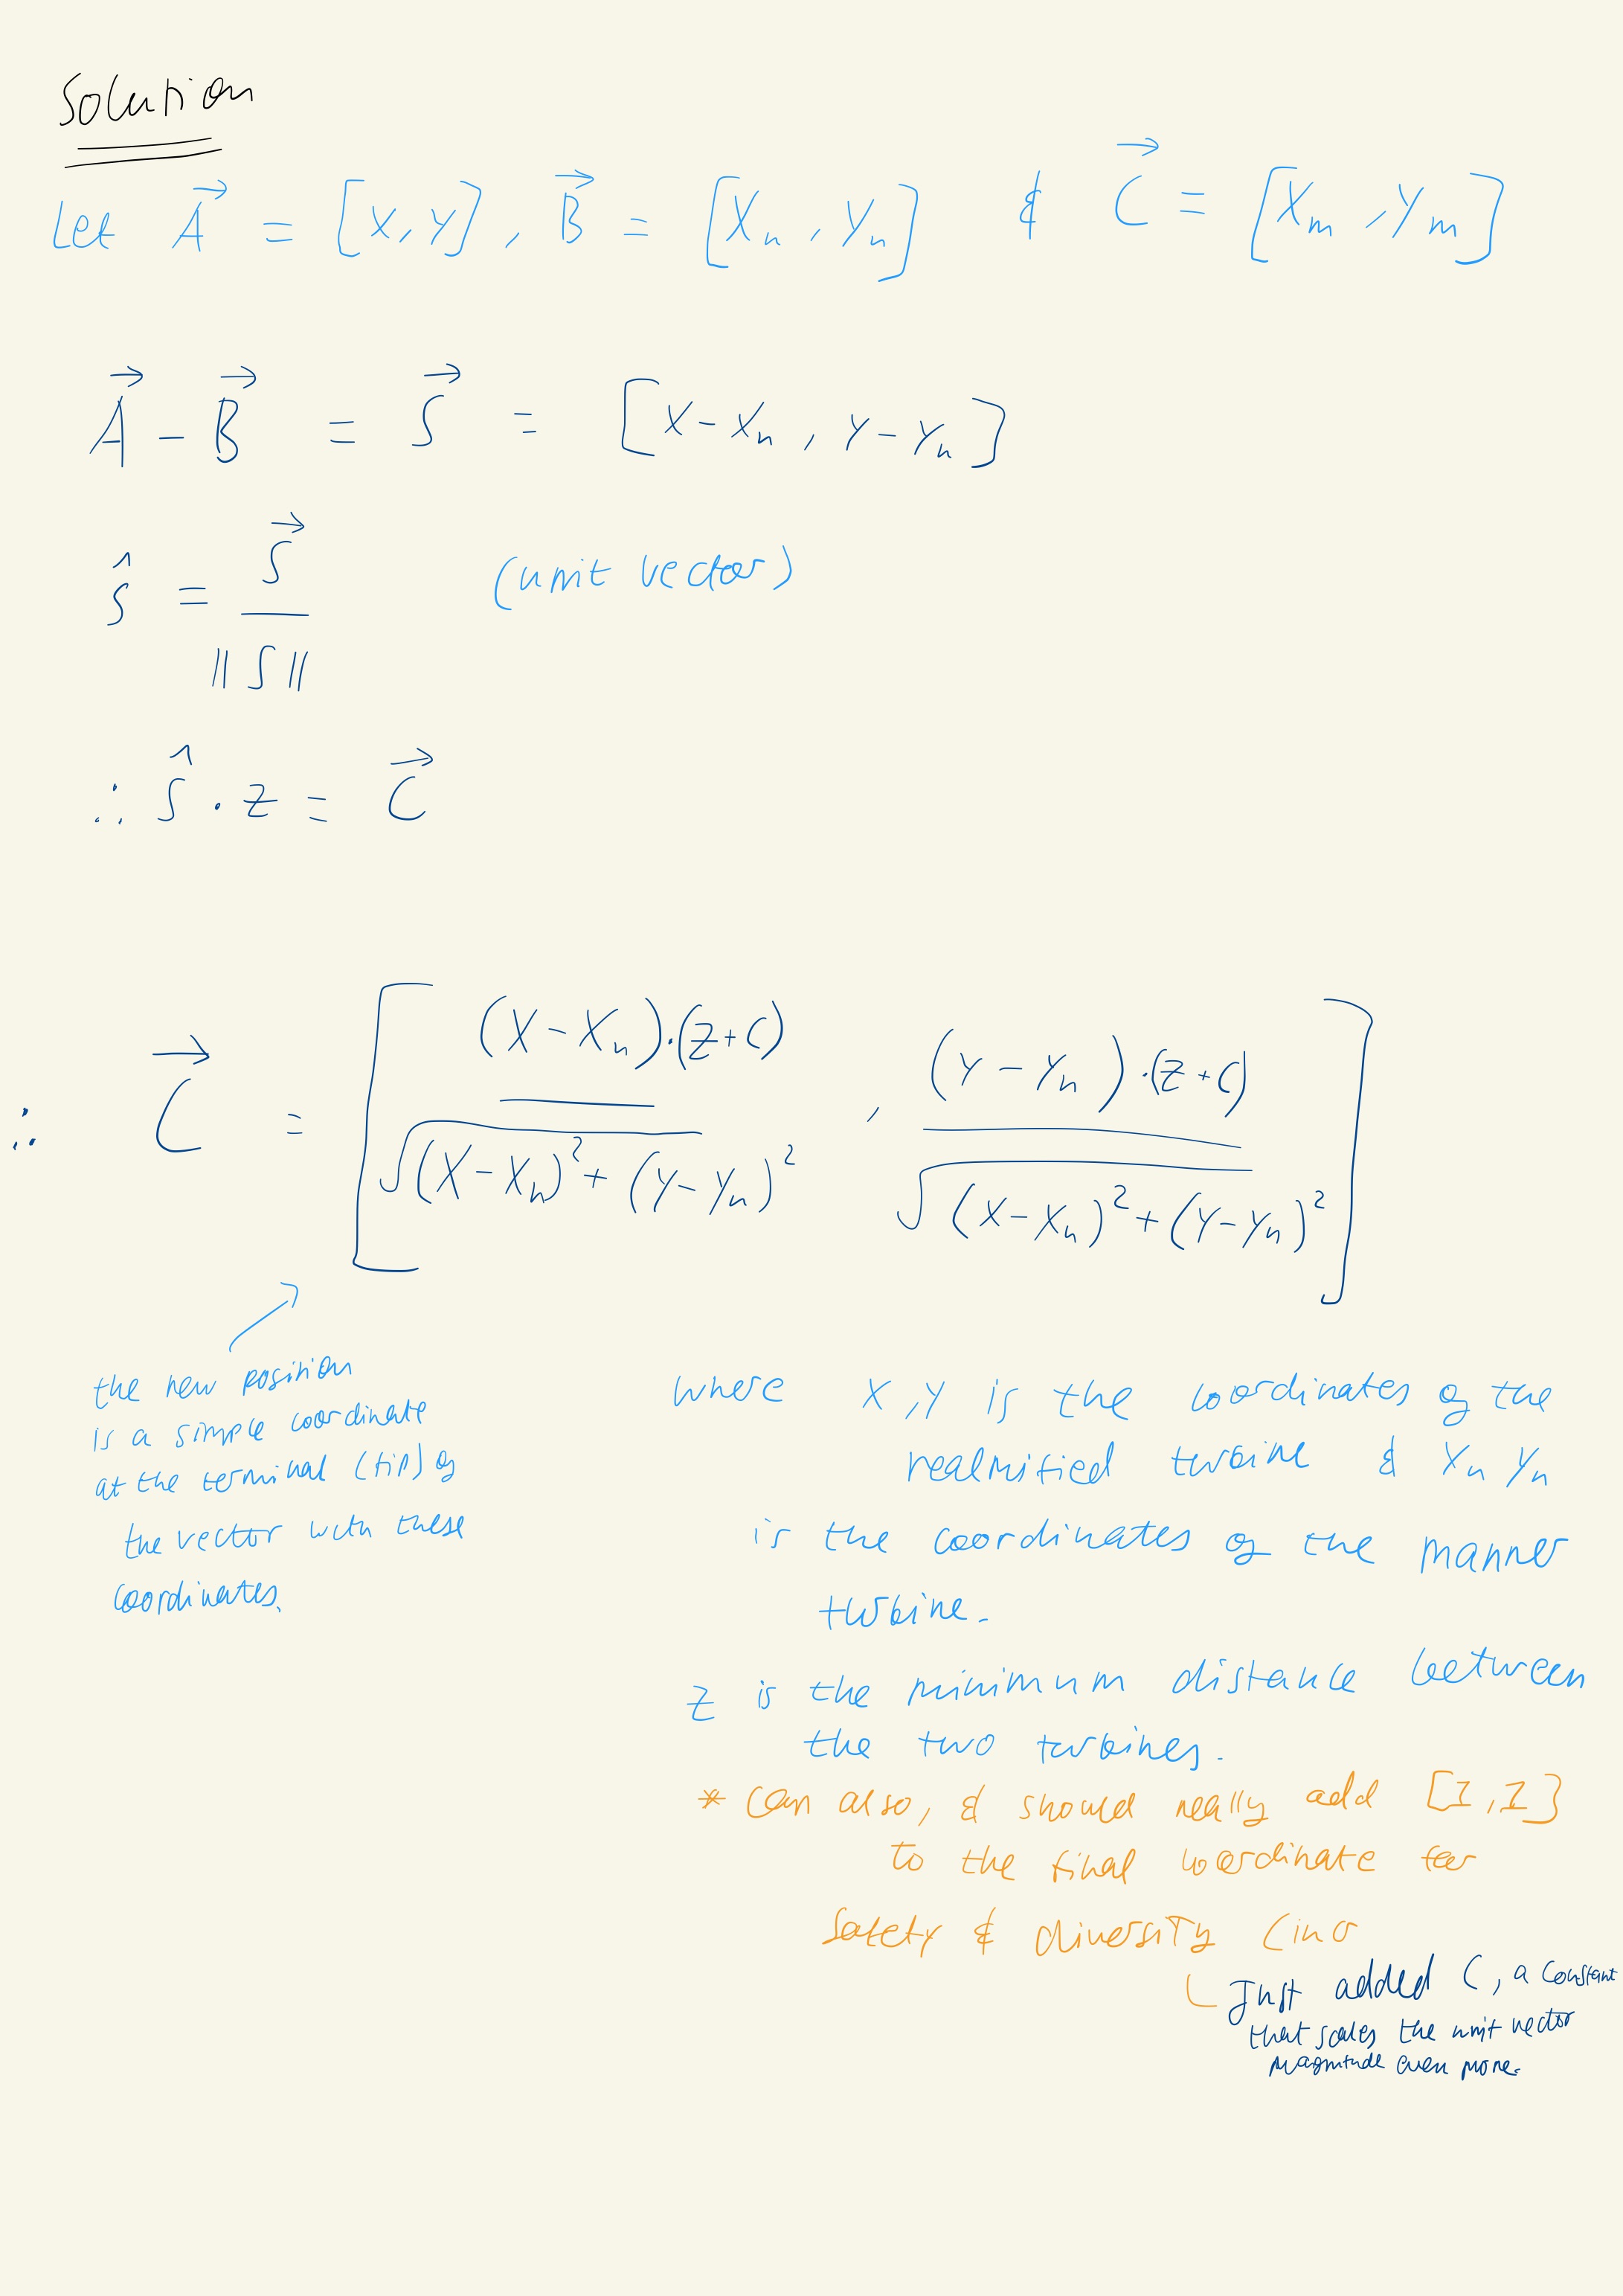 Solution
Let A⃗ = [X, Y], B⃗ = [Xₙ, Yₙ] & C⃗ = [Xₘ, Yₘ]
A⃗ − B⃗ = S⃗ = [X − Xₙ, Y − Yₙ]
ŝ = S⃗ / ||S|| (unit vector)
∴ Ŝ · z = C⃗
∴ C⃗ = [ (X − Xₙ)·(z + C) / √(X − Xₙ)² + (Y − Yₙ)² , (Y − Yₙ)·(z + C) / √(X − Xₙ)² + (Y − Yₙ)² ]
the new position
is a simple coordinate
at the terminal (tip) of
the vector with these
coordinates.
where X, Y is the coordinates of the
turbine & Xₙ Yₙ
is the coordinates of the
turbine.
z is the minimum distance between
the two turbines.
* Can also, & should really add [1, 1]
to the final coordinate for
Safety & diversity (inc
Just added C, a constant
that scales the unit vector
magnitude even more.